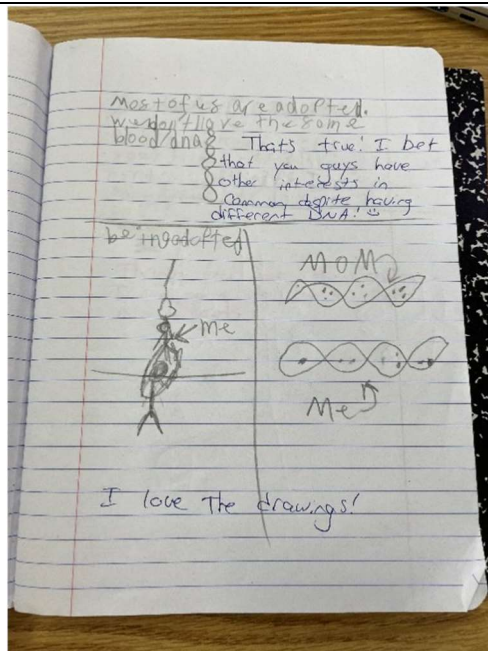 most of us are adopted.
we don't have the same
blood/dna
That's true! I bet
that you guys have
other interests in
common dspite having
different DNA!
being adopted
me
MOM
Me
I love The drawings!